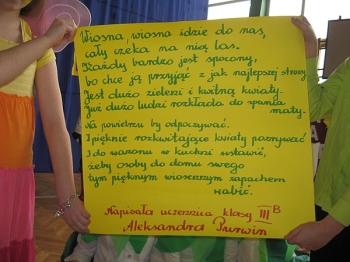 Wiosna, wiosna idzie do nas,
cały czeka na nią las.
Każdy bardzo jest spocony,
bo chce ją przyjąć z jak najlepszej strony
Jest dużo zieleni i kwitną kwiaty.
Już dużo ludzi rozkłada do spania
maty.
Na powietrzu by odpoczywać.
I pięknie rozkwitające kwiaty pozrywać
I do wazonu w kuchni wstawić,
żeby osoby do domu swego
tym pięknym wiosennym zapachem
wabić.
Napisała uczennica klasy III B
Aleksandra